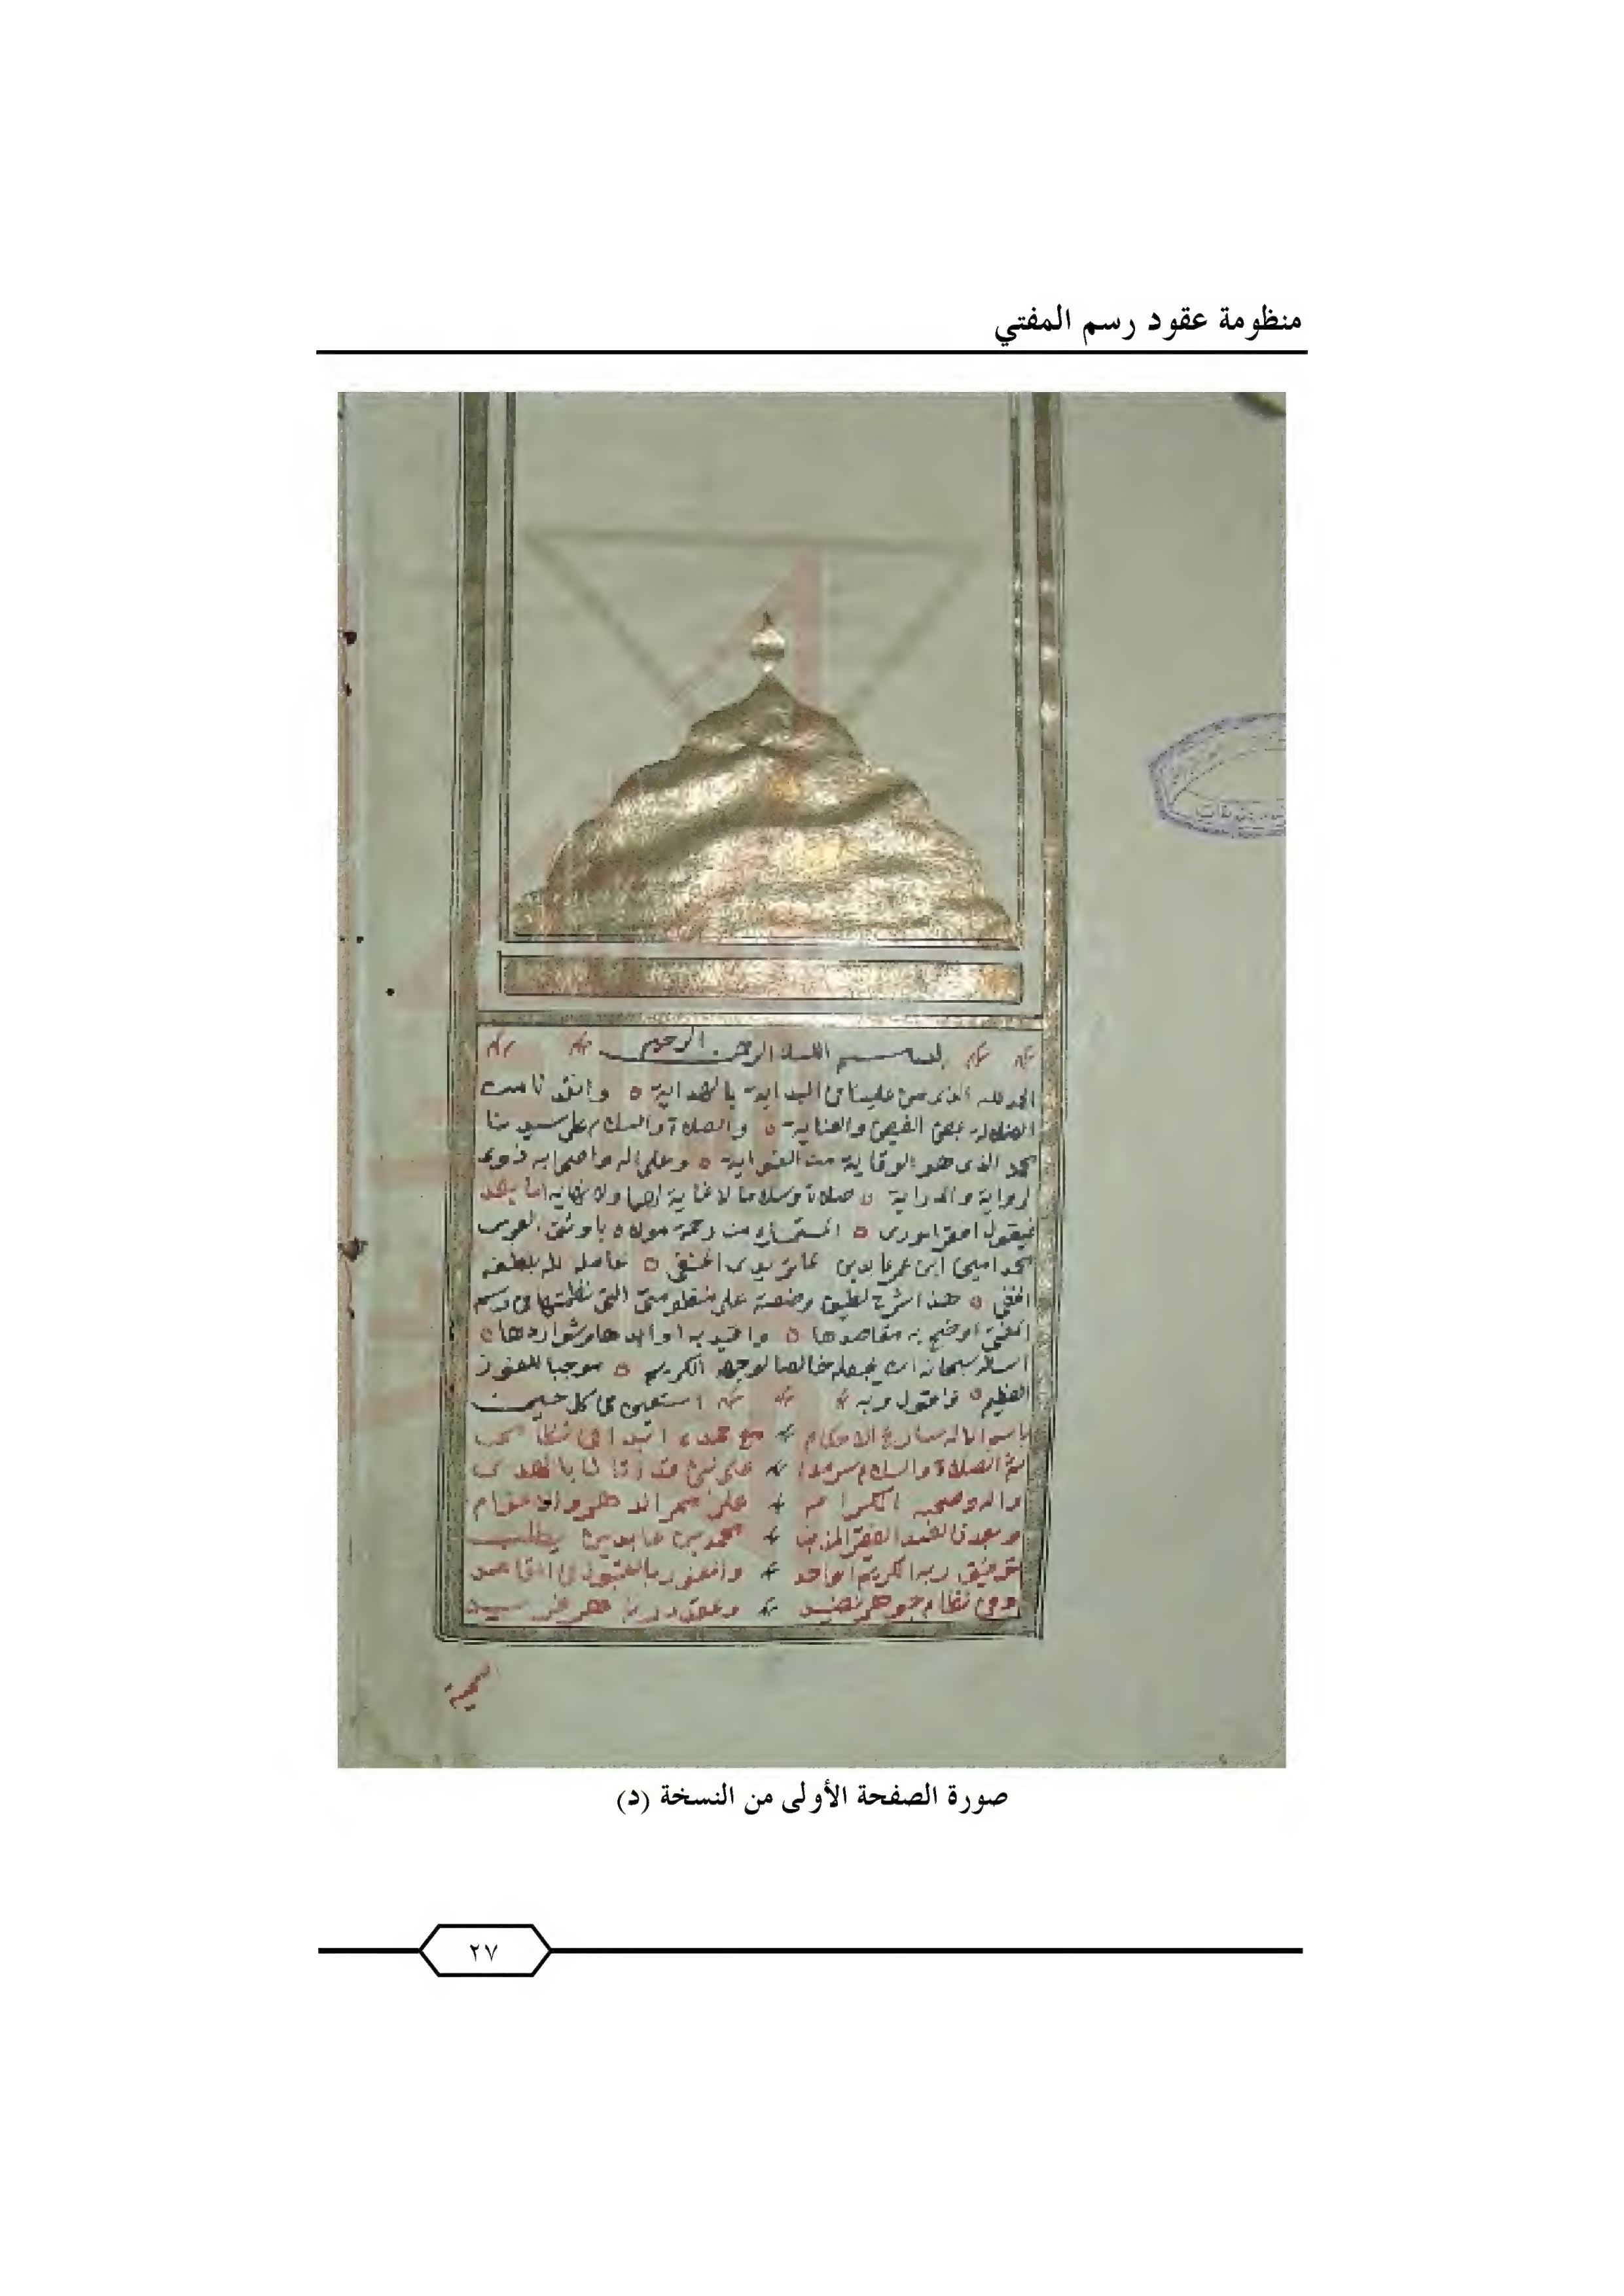 منظومة عقود رسم المفتي
بسم الله الرحمن الرحيم
الحمد لله الذي من علينا في البداية بالهداية وانقذنا من
الضلالة بمحض الفيض والعناية والصلاة والسلام على سيدنا
محمد الذي هو الوقاية من الغواية وعلى اله واصحابه ذوي
الرواية والدراية صلاة وسلاما لا غاية لهما ولا نهاية اما بعد
فيقول افقر الورى المستمسك من رحمة مولاه باوثق العرى
محمد امين ابن عمر عابدين الماتريدي الحنفي عامله الله بلطفه
الخفي هذا شرح لطيف وضعته على منظومتي التي نظمتها في رسم
المفتي اوضح به مقاصدها واقيد به اوابدها وشواردها
اسأله سبحانه ان يجعله خالصا لوجهه الكريم موجبا للفوز
العظيم فاقول وبه استعين في كل حين
باسم الاله شارع الاحكام مع حمده ابدأ في نظامي
ثم الصلاة والسلام سرمدا على نبي قد اتانا بالهدى
واله وصحبه الكرام على ممر الدهر والاعوام
وبعد فالعبد الفقير المذنب محمد بن عابدين يطلب
توفيق ربه الكريم الواحد والفوز بالقبول في المقاصد
وفي نظام جوهر نضيد وعقد در باهر فريد
سميته
صورة الصفحة الأولى من النسخة (د)
٢٧